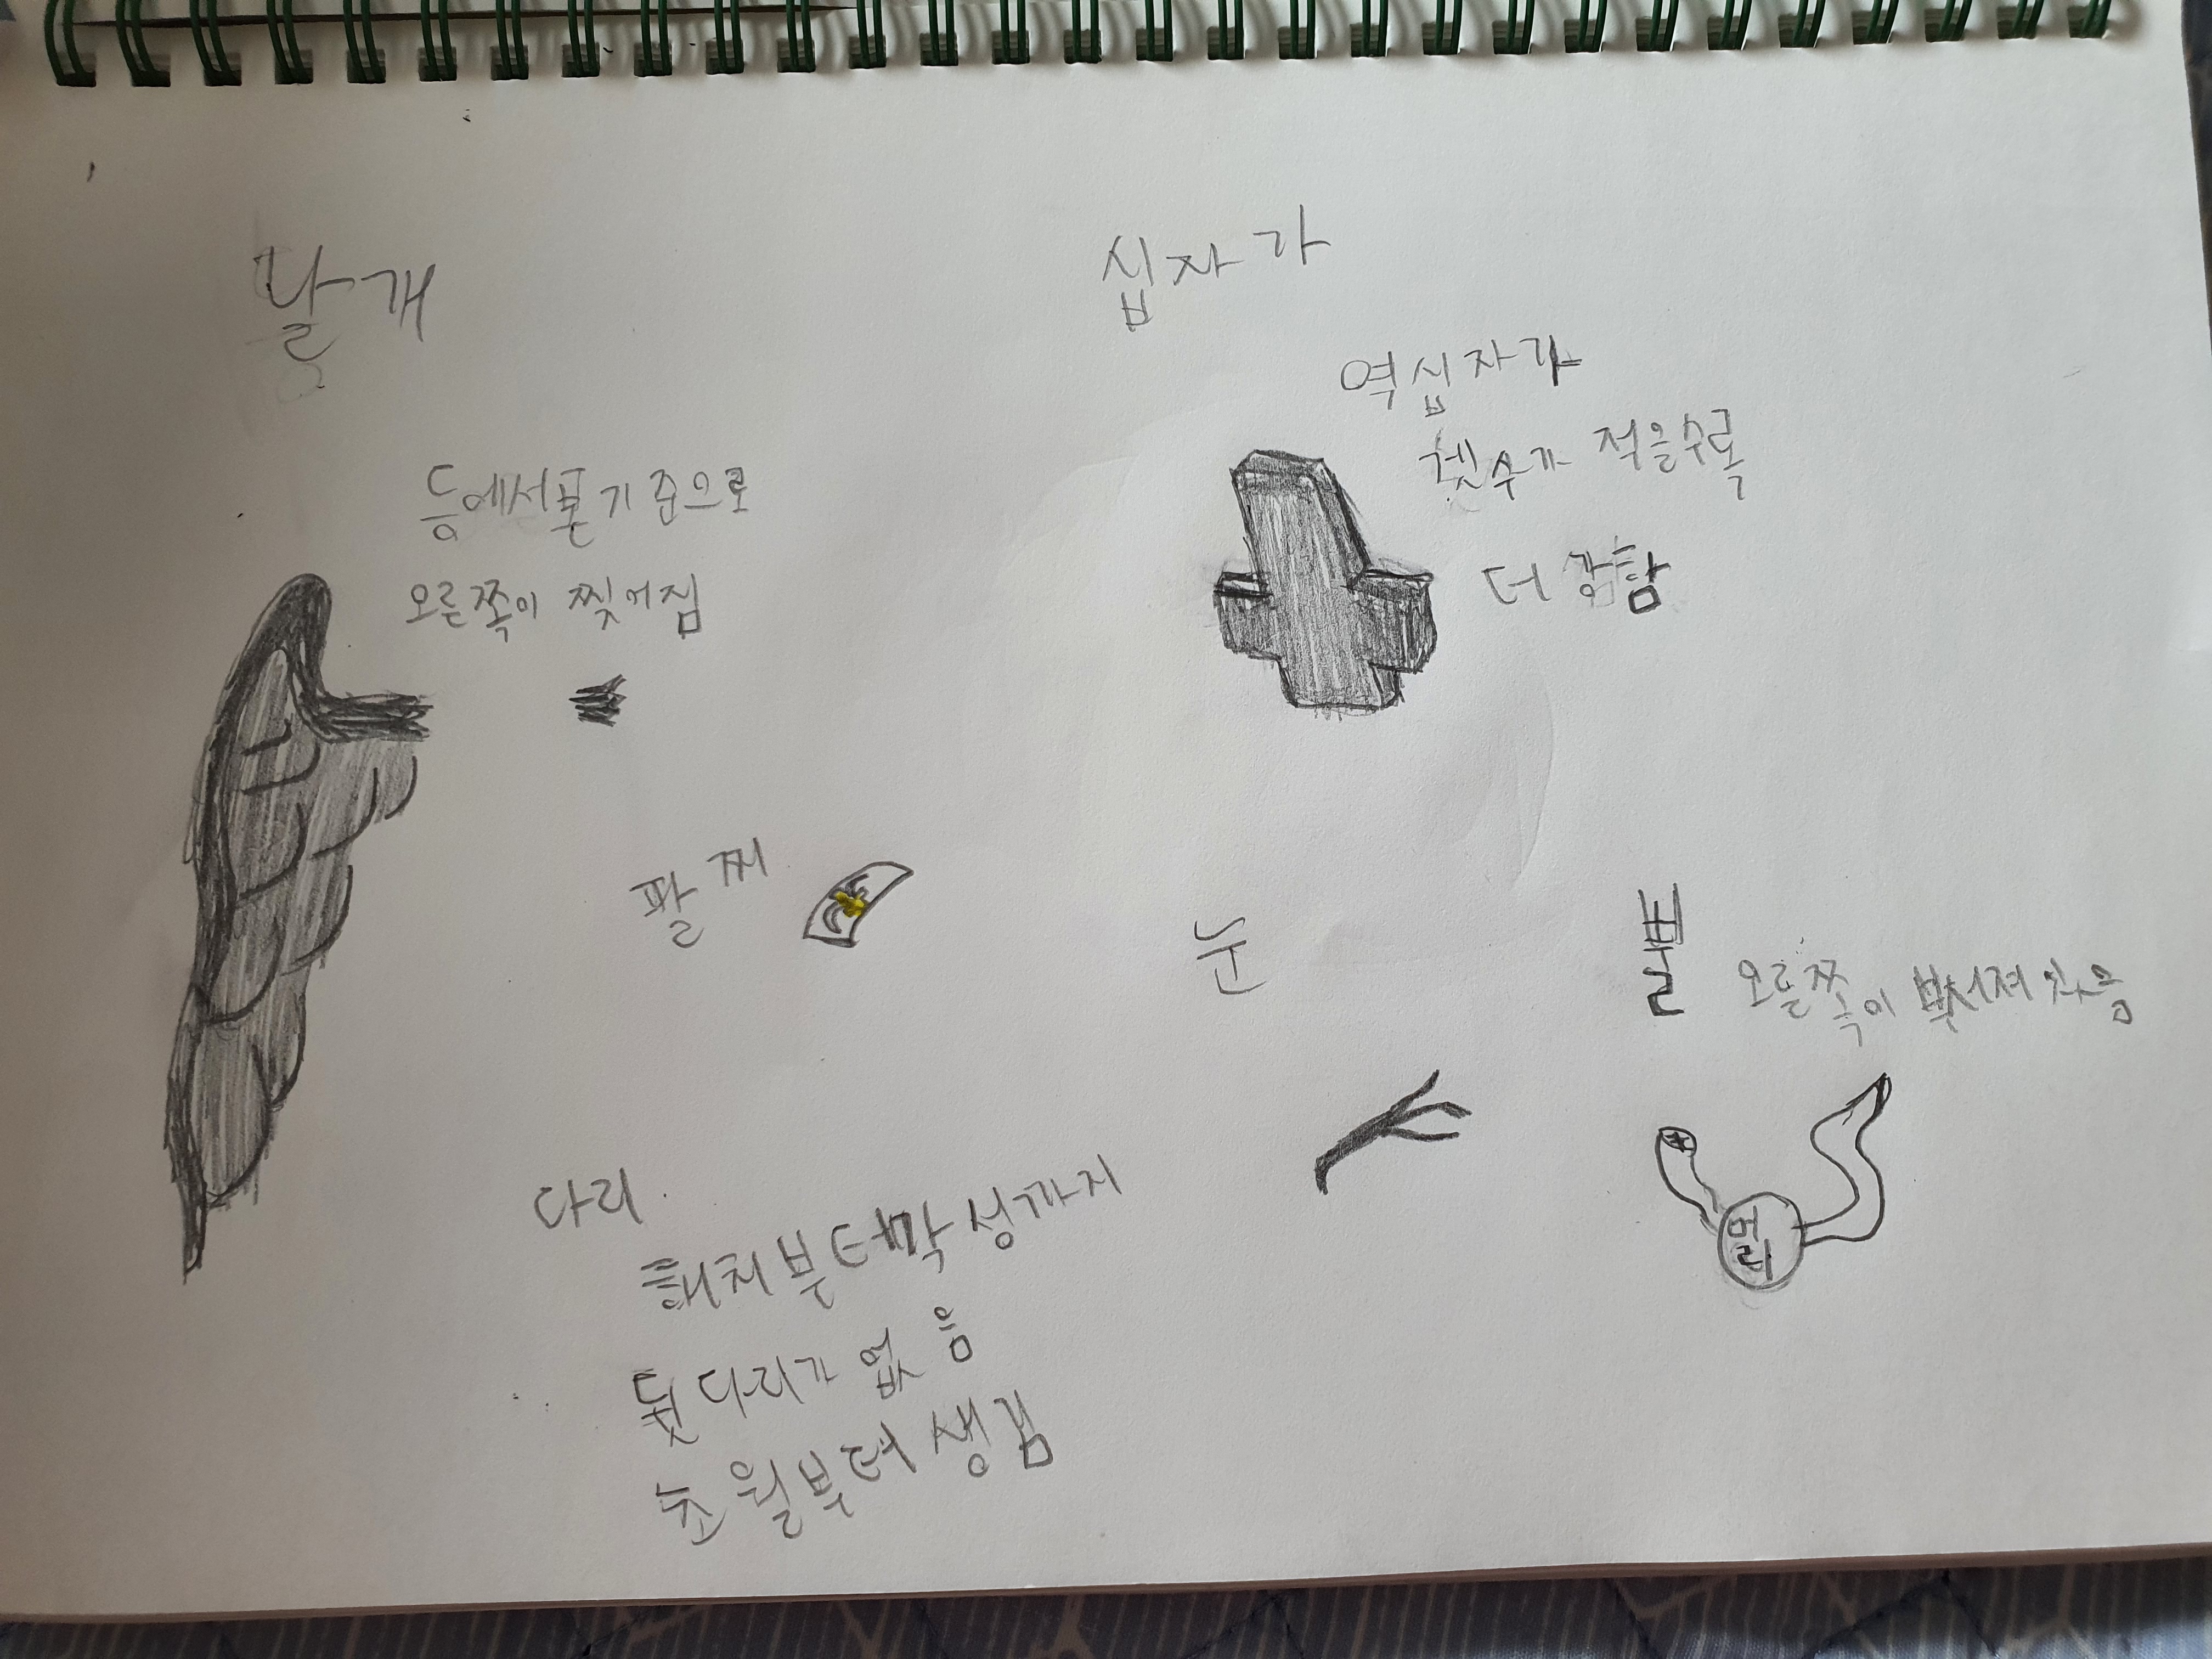 날개
등에서 본 기준으로
오른쪽이 찢어짐
십자가
역십자가
수가 적을수록
더 강함
팔찌
눈
뿔
오른쪽이 부서져
머리
다리
해치부터 막성까지
뒷다리가 없음
초월부터 생김